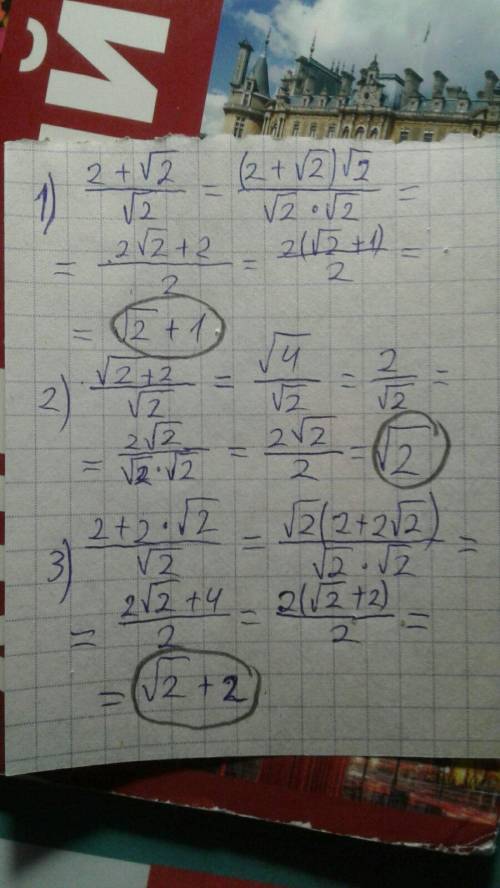 Й
1) (2 + √2)/√2 = ((2 + √2)√2)/(√2 · √2) =
= (2√2 + 2)/2 = (2(√2 + 1))/2 =
= √2 + 1
2) √(2+2)/√2 = √4/√2 = 2/√2 =
= 2√2/(√2 · √2) = 2√2/2 = √2
3) (2 + 2 · √2)/√2 = (√2(2 + 2√2))/(√2 · √2) =
= (2√2 + 4)/2 = (2(√2 + 2))/2 =
= √2 + 2